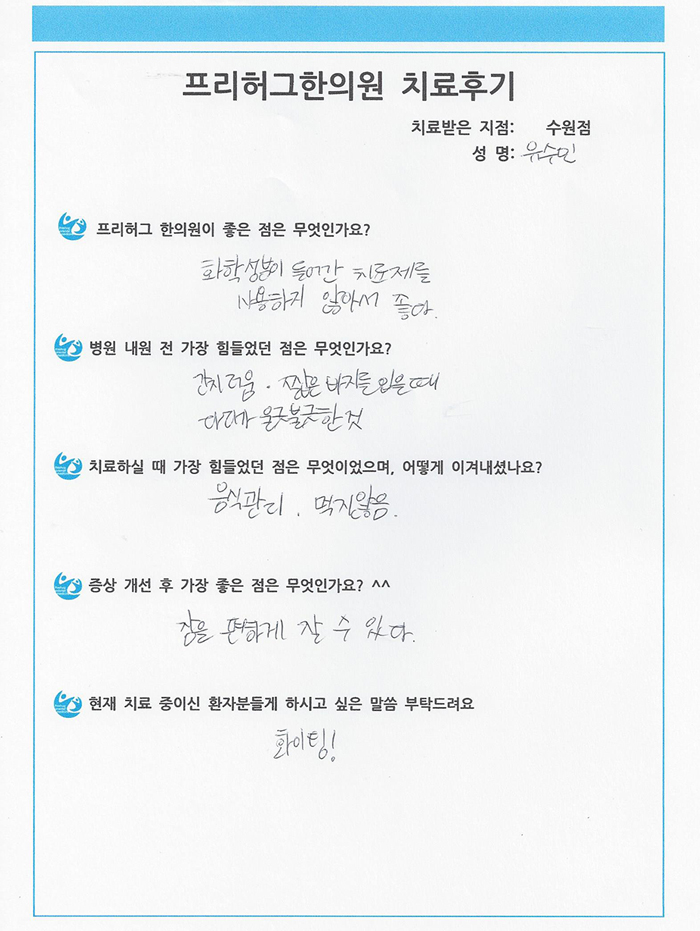 프리허그한의원 치료후기
치료받은 지점: 수원점
성 명: 유수민
프리허그 한의원이 좋은 점은 무엇인가요?
화학성분이 들어간 치료제를
사용하지 않아서 좋다.
병원 내원 전 가장 힘들었던 점은 무엇인가요?
간지러움. 짧은 바지를 입을 때
다리가 울긋불긋한 것
치료하실 때 가장 힘들었던 점은 무엇이었으며, 어떻게 이겨내셨나요?
음식관리. 먹지않음.
증상 개선 후 가장 좋은 점은 무엇인가요? ^^
잠을 편하게 잘 수 있다.
현재 치료 중이신 환자분들게 하시고 싶은 말씀 부탁드려요
화이팅!